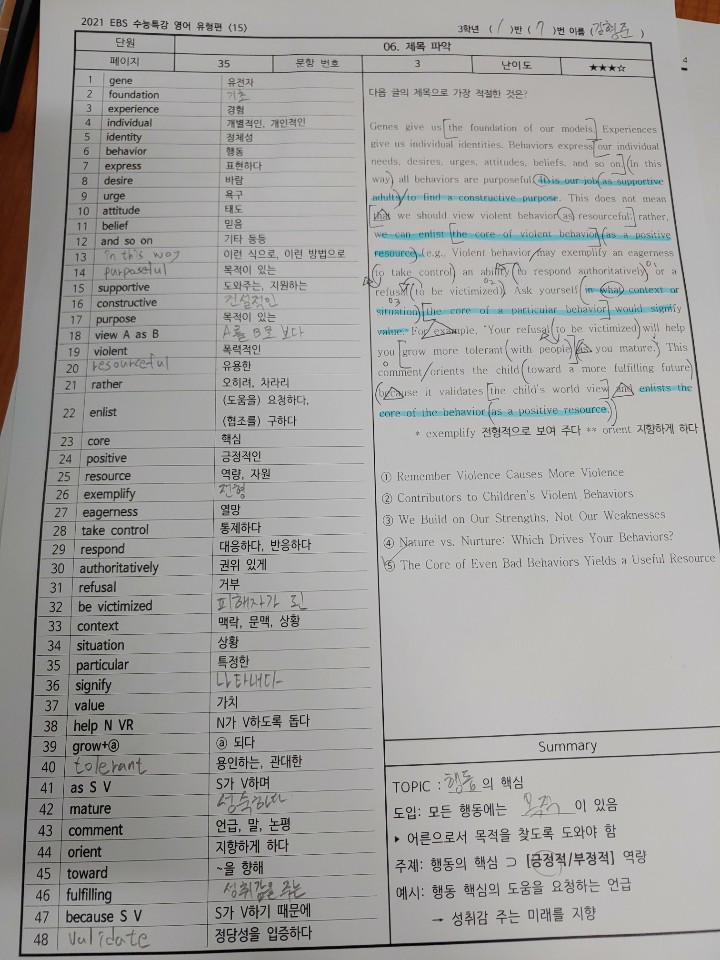 2021 EBS 수능특강 영어 유형편 <15>
3학년 ( 1 )반 ( 7 )번 이름 (김형준)
단원 06. 제목 파악
페이지 35 문항 번호 3 난이도 ★★★☆
1 gene 유전자
2 foundation 기초
3 experience 경험
4 individual 개별적인, 개인적인
5 identity 정체성
6 behavior 행동
7 express 표현하다
8 desire 바람
9 urge 욕구
10 attitude 태도
11 belief 믿음
12 and so on 기타 등등
13 in this way 이런 식으로, 이런 방법으로
14 purposeful 목적이 있는
15 supportive 도와주는, 지원하는
16 constructive 건설적인
17 purpose 목적이 있는
18 view A as B A를 B로 보다
19 violent 폭력적인
20 resourceful 유용한
21 rather 오히려, 차라리
22 enlist (도움을) 요청하다,
(협조를) 구하다
23 core 핵심
24 positive 긍정적인
25 resource 역량, 자원
26 exemplify 전형
27 eagerness 열망
28 take control 통제하다
29 respond 대응하다, 반응하다
30 authoritatively 권위 있게
31 refusal 거부
32 be victimized 피해자가 된
33 context 맥락, 문맥, 상황
34 situation 상황
35 particular 특정한
36 signify 나타내다
37 value 가치
38 help N VR N가 V하도록 돕다
39 grow+ⓐ ⓐ 되다
40 tolerant 용인하는, 관대한
41 as S V S가 V하며
42 mature 성숙하다
43 comment 언급, 말, 논평
44 orient 지향하게 하다
45 toward ~을 향해
46 fulfilling 성취감을 주는
47 because S V S가 V하기 때문에
48 validate 정당성을 입증하다
다음 글의 제목으로 가장 적절한 것은?
Genes give us [the foundation of our models.] Experiences
give us individual identities. Behaviors express [our individual
needs, desires, urges, attitudes, beliefs, and so on.] (In this
way) all behaviors are purposeful. It is our job (as supportive
adults) to find a constructive purpose. This does not mean
[that we should view violent behavior as resourceful;] rather,
we can enlist [the core of violent behavior] (as a positive
resource) (e.g., Violent behavior may exemplify an eagerness
(to take control) an ability (to respond authoritatively) or a
refusal (to be victimized). Ask yourself (in what context or
situation) [the core of a particular behavior] would signify
value. For example, "Your refusal (to be victimized) will help
you [grow more tolerant (with people) as you mature." This
comment orients the child (toward a more fulfilling future)
(because it validates [the child's world view] and enlists the
core of the behavior (as a positive resource.)
* exemplify 전형적으로 보여 주다 ** orient 지향하게 하다
① Remember Violence Causes More Violence
② Contributors to Children's Violent Behaviors
③ We Build on Our Strengths, Not Our Weaknesses
④ Nature vs. Nurture: Which Drives Your Behaviors?
⑤ The Core of Even Bad Behaviors Yields a Useful Resource
Summary
TOPIC : 행동 의 핵심
도입: 모든 행동에는 목적 이 있음
▸ 어른으로서 목적을 찾도록 도와야 함
주제: 행동의 핵심 ⊃ [긍정적/부정적] 역량
예시: 행동 핵심의 도움을 요청하는 언급
→ 성취감 주는 미래를 지향